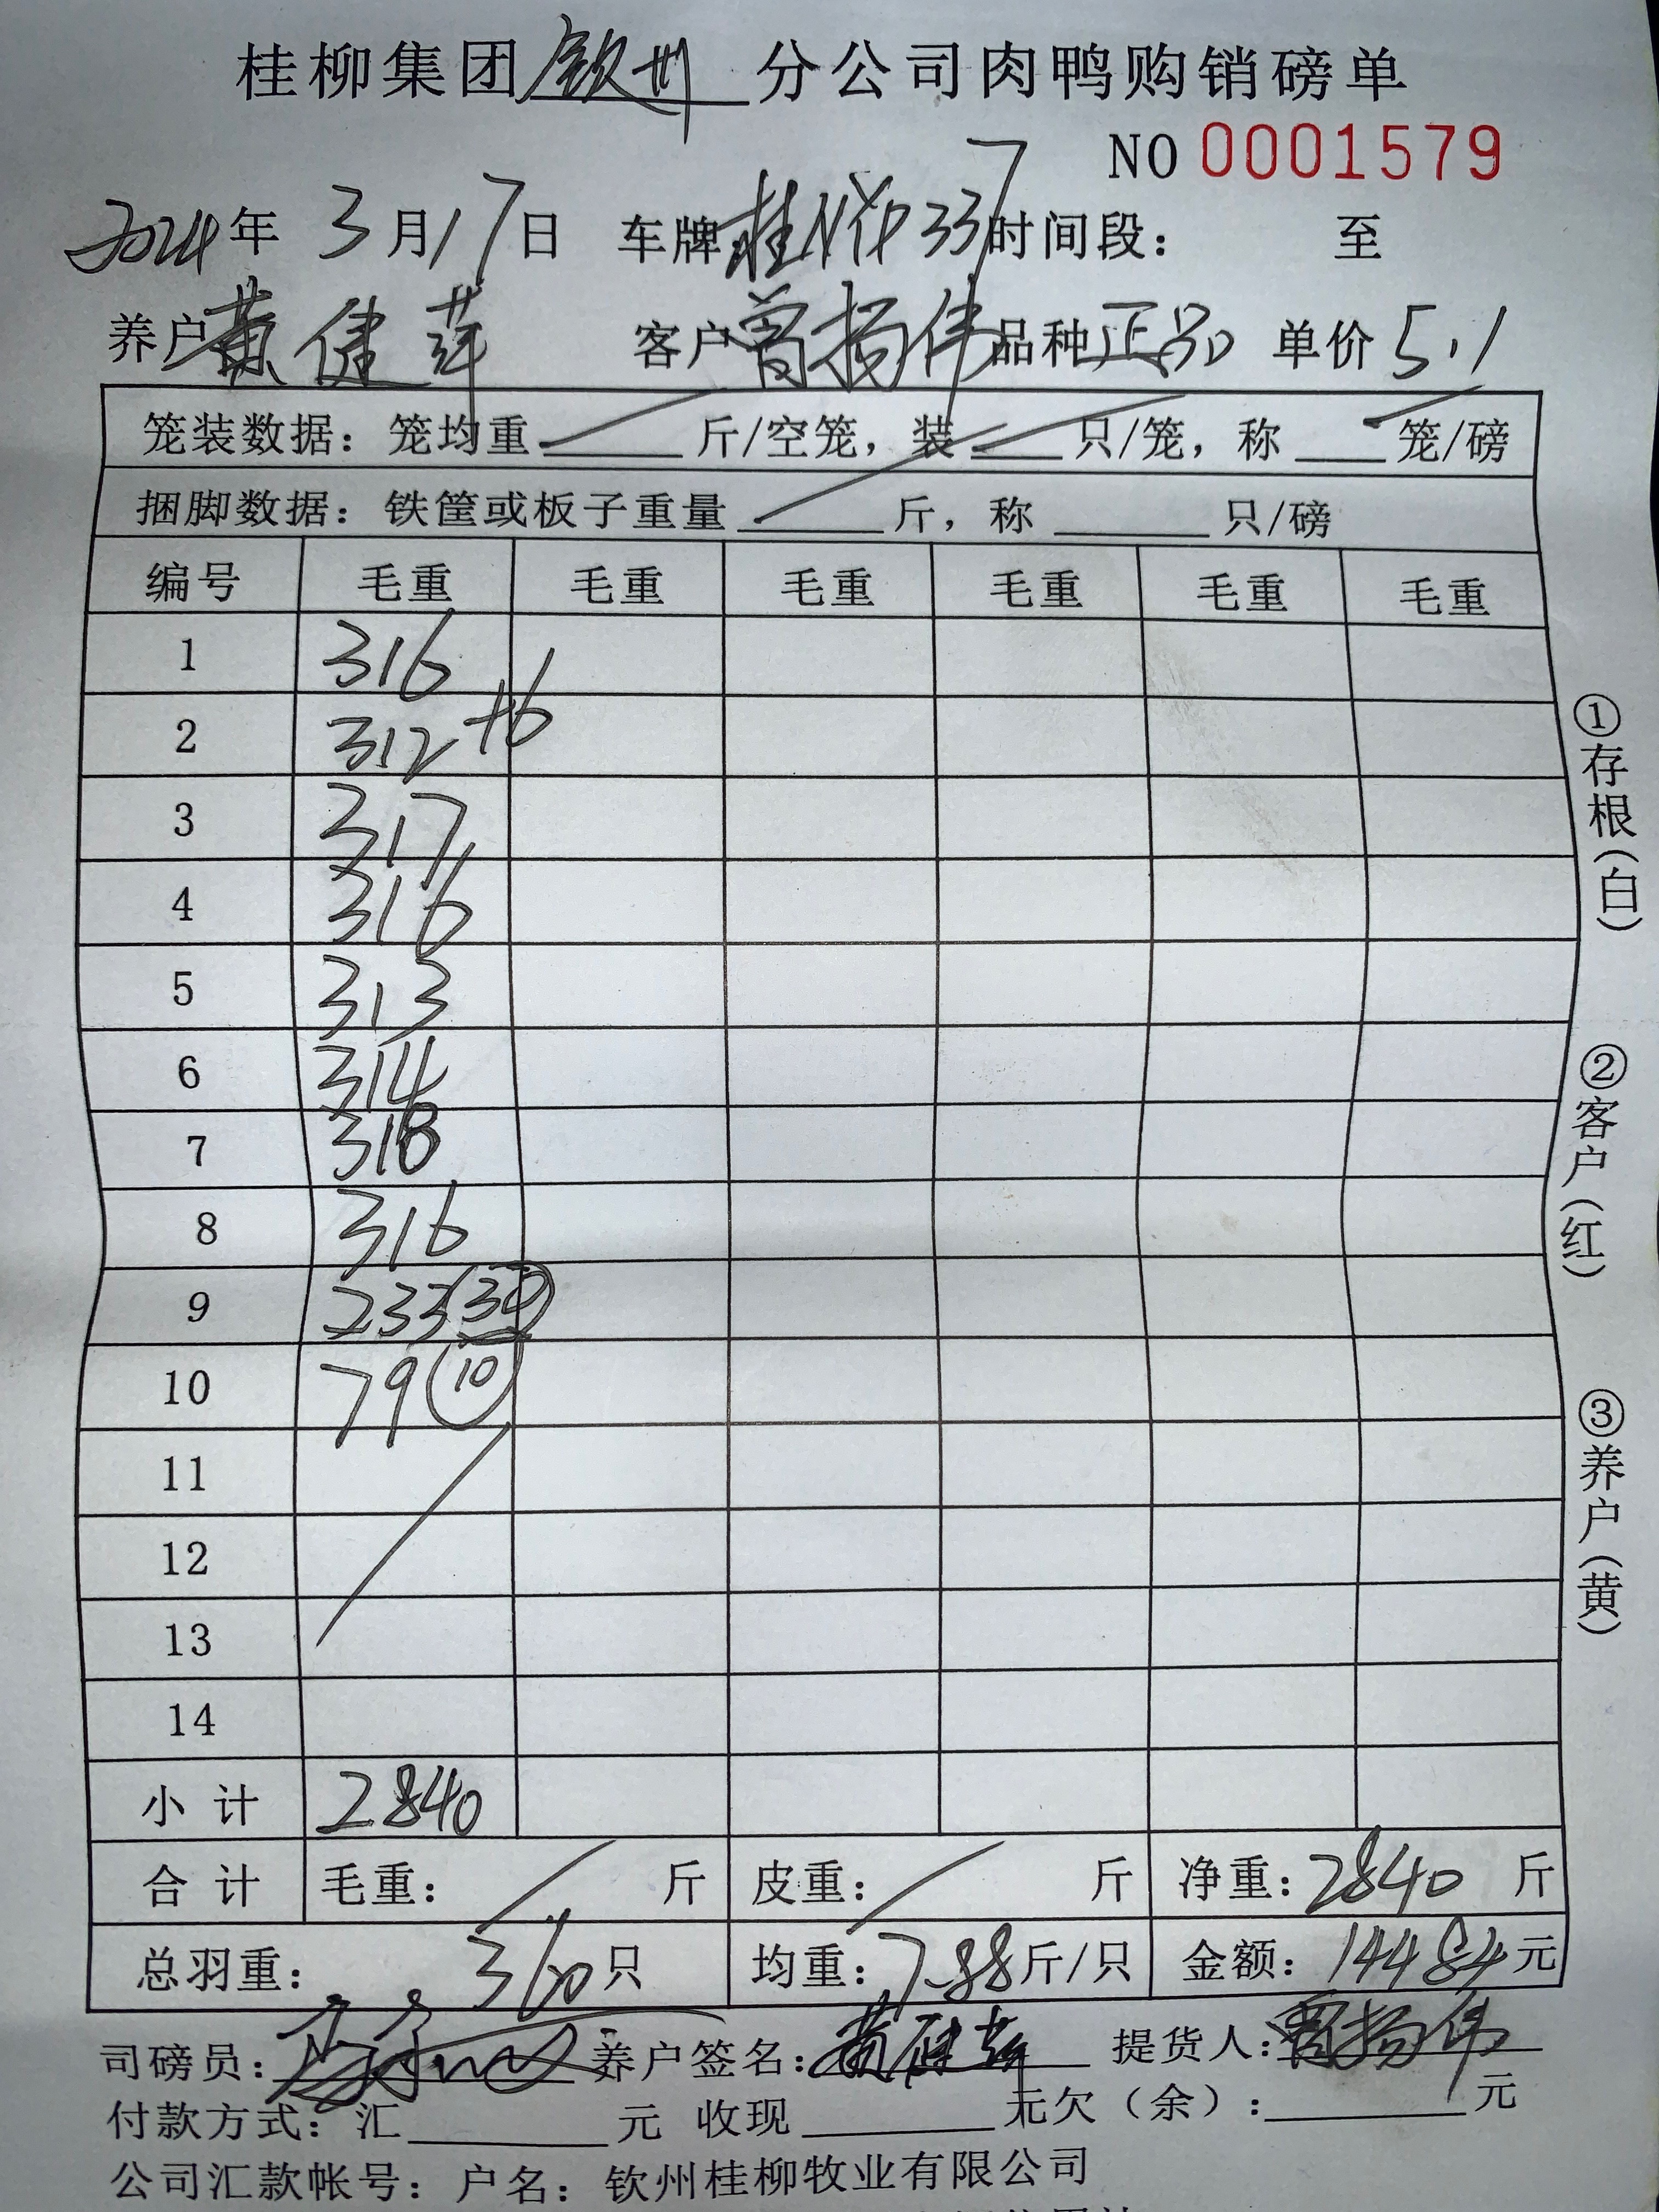 桂柳集团钦州分公司肉鸭购销磅单
NO 0001579
2024年 3月17日 车牌桂NYD337时间段： 至
养户黄健萍 客户曾扬伟品种正品 单价5.1
笼装数据：笼均重 斤/空笼，装 只/笼，称 笼/磅
捆脚数据：铁筐或板子重量 斤，称 只/磅
编号 毛重 毛重 毛重 毛重 毛重 毛重
1 316
2 312 +6
3 317
4 316
5 313
6 314
7 318
8 316
9 233(30)
10 79(10)
11
12
13
14
小计 2840
合计 毛重： 斤 皮重： 斤 净重：2840 斤
总羽重： 360只 均重：7.88斤/只 金额：14484元
司磅员： 养户签名：黄健萍 提货人：曾扬伟
付款方式：汇 元 收现 元欠（余）： 元
公司汇款帐号：户名：钦州桂柳牧业有限公司
①存根（白）
②客户（红）
③养户（黄）